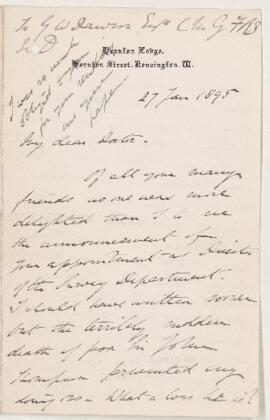 To G W Dawson Esqre C.M.G. F.R.S
Hornton Lodge,
Hornton Street, Kensington. W.
I was so much
obliged
for your
27 Jan 1895
My dear Doctor.
Of all your many
friends no one was more
delighted than I to see
the announcement of
your appointment as Director
of the Survey Department.
I should have written sooner
but the terribly sudden
death of poor Sir John
Thompson prevented my
doing so. What a loss he is!